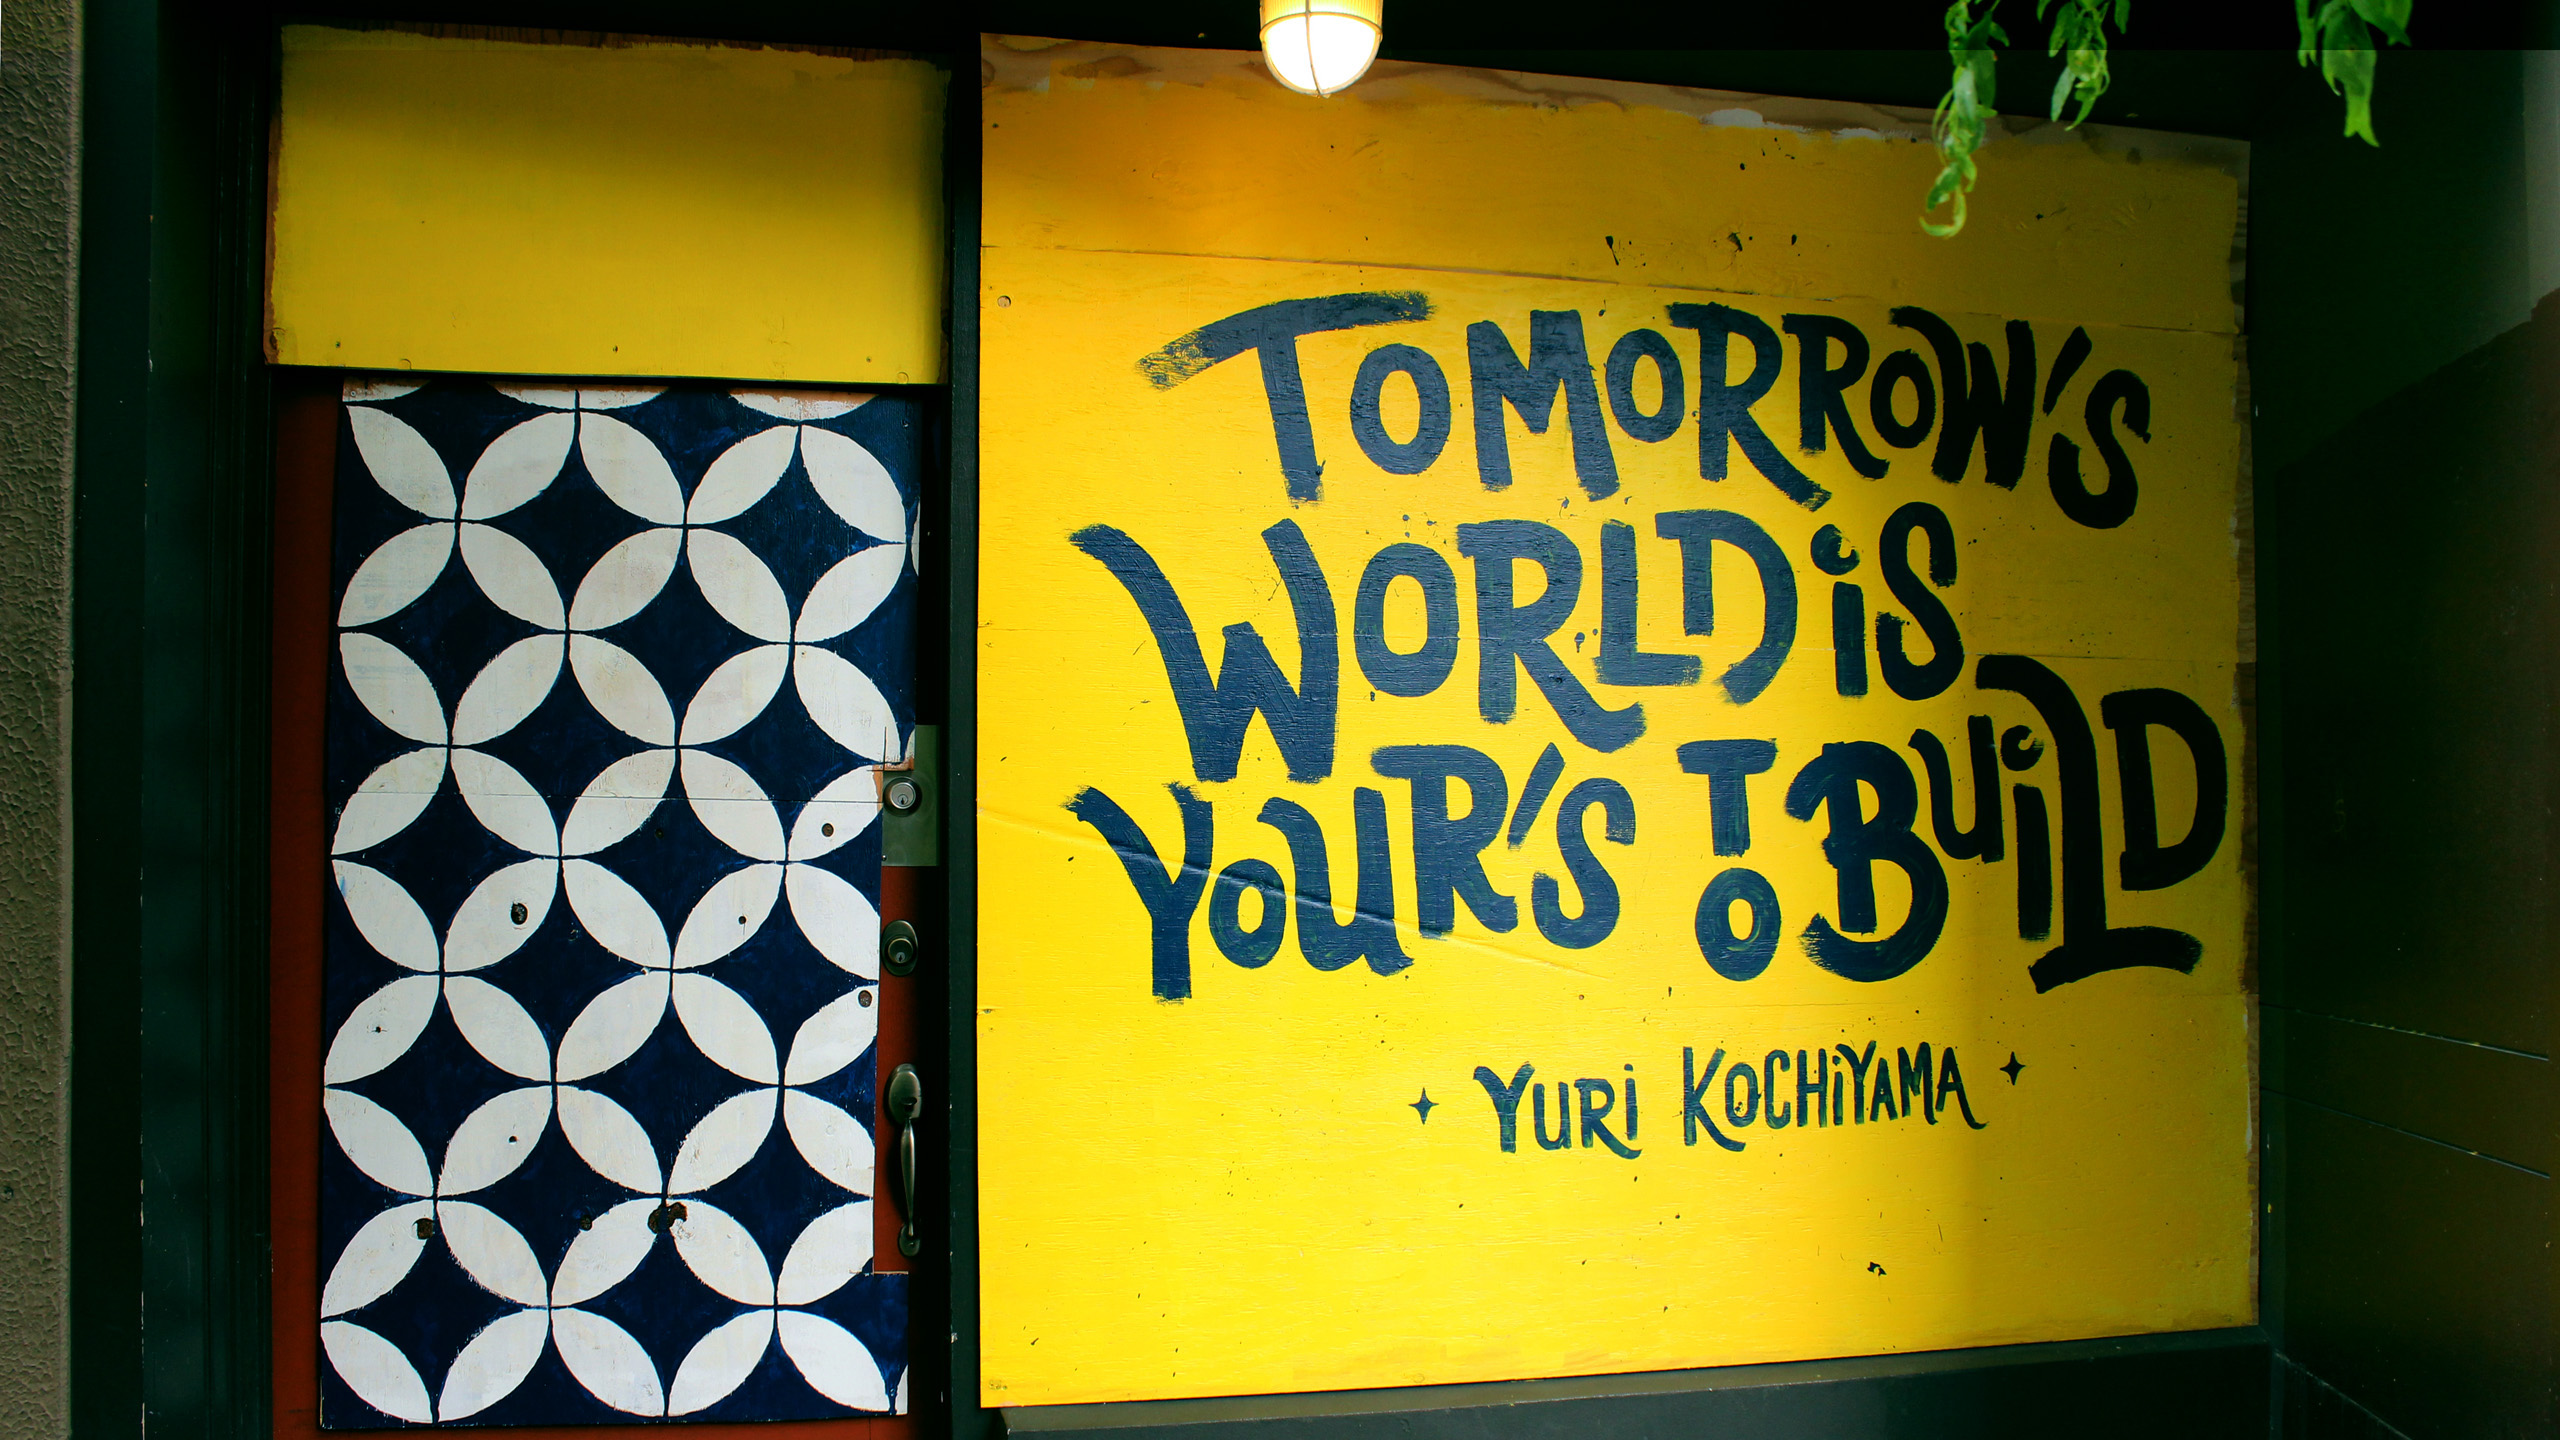 TOMORROW'S
WORLD iS
YOUR'S TO BUiLD
YURi KOCHiYAMA